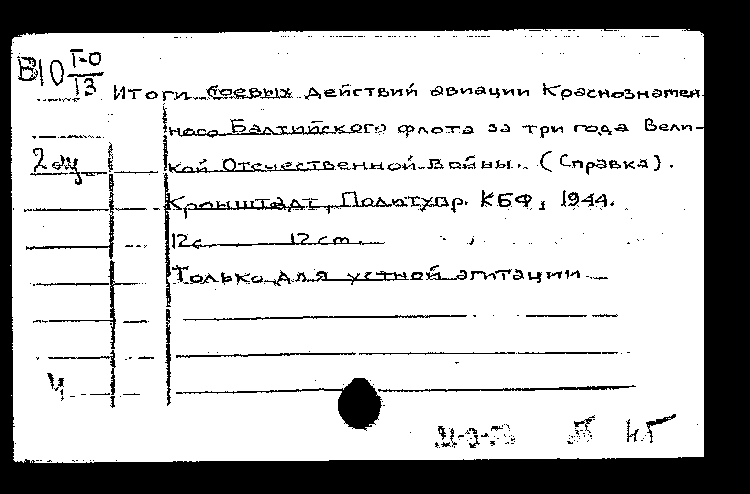 В10 Г-0
13
Итоги боевых действий авиации Краснознамен
ного Балтийского флота за три года Вели-
2 экз
кой Отечественной Войны. (Справка).
Кронштадт, Политупр. КБФ, 1944.
12с. 12 см.
Только для устной агитации
Ч